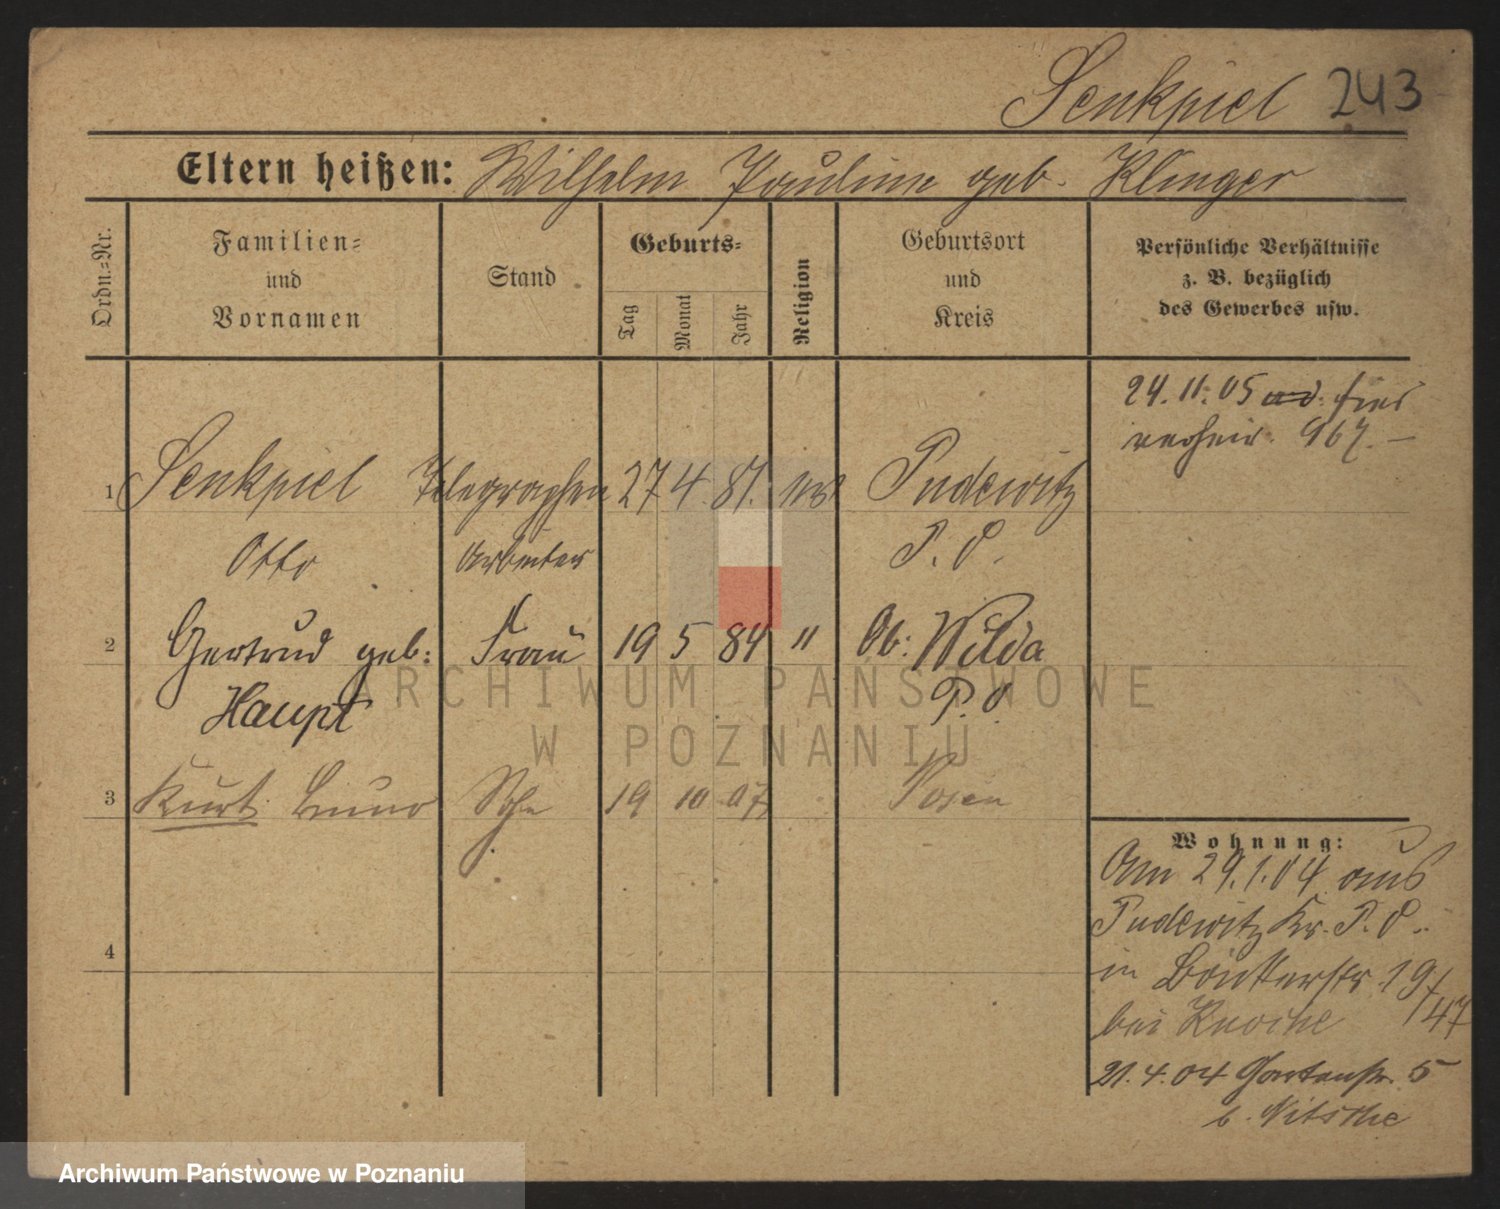 Senkpiel 243
Eltern heißen: Wilhelm Pauline geb. Klinger
Ordn.-Nr.
Familien- und Vornamen
Stand
Geburts-
Tag
Monat
Jahr
Religion
Geburtsort und Kreis
Persönliche Verhältnisse
z. B. bezüglich
des Gewerbes usw.
24. 11. 05 hier
verheir. 967.—
1 Senkpiel Telegraphen 27 4. 81. Pudewitz
Otto Arbeiter P. O.
2 Gertrud geb: Frau 19 5 84 " Ob: Wilda
Haupt P. O.
3 Kurt Bruno Sohn 19 10 07 Posen
4
Wohnung:
Am 29.1.04 aus
Pudewitz Kr. P. O.
in 19/47
bei Knoche
21.4.04 Gartenstr. 5
b. Nitsche
ARCHIWUM PAŃSTWOWE
W POZNANIU
Archiwum Państwowe w Poznaniu